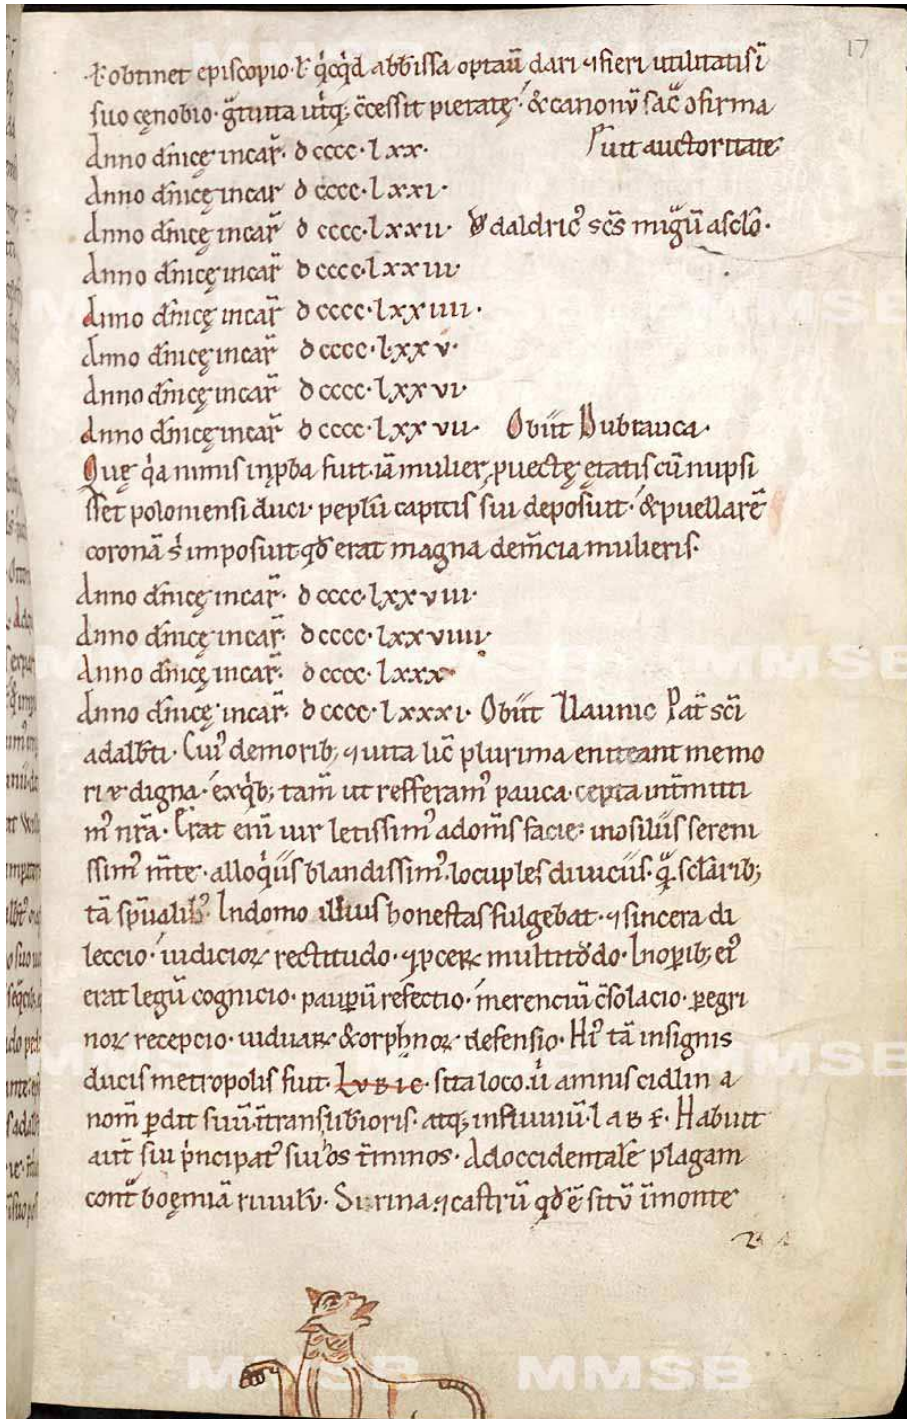 17
ł obtinet episcopio· ł q̇cq̇d abbissa optau̅ dari ⁊ fieri utilitatis i̅
suo cęnobio· g̈tuita utiq; c̅cessit pietate· & canonu̅ sac̈ ofirma
Anno dn̅icę incar̅· dcccc·lxx· uit auctoritate
Anno dn̅icę incar̅ dcccc·lxxi·
Anno dn̅icę incar̅ dcccc·lxxii· Vdaldric᾿ sc̅s migu̅ a sclo̅·
Anno dn̅icę incar̅ dcccc·lxxiii·
Anno dn̅icę incar̅ dcccc·lxxiiii·
Anno dn̅icę incar̅ dcccc·lxxv·
Anno dn̅icę incar̅ dcccc·lxxvi·
Anno dn̅icę incar̅ dcccc·lxxvii· Obiit Dubrauca·
Quę q̇a nimis inp̱ba fuit· ia̅ mulier ꝓuectę ętatis cu̅ nupsi
sset poloniensi duci· peplu̅ capitis sui deposuit· & puellare̅
corona̅ s᾿ imposuit· qd̅ erat magna dem̅cia mulieris·
Anno dn̅icę incar̅· dcccc·lxxviii·
Anno dn̅icę incar̅· dcccc·lxxviiii·
Anno dn̅icę incar̅· dcccc·lxxx·
Anno dn̅icę incar̅· dcccc·lxxxi· Obiit Zlaunic Pat̅ sc̅i
adalb̅ti· Cui᾿ de morib; ⁊ uita lic̅ plurima eniteant memo
rię digna· ex q̇b; tam̅ ut refferam᾿ pauca· cepta int̅mitti
m᾿ nr̅a· Erat eni̅ uir letissim᾿ ad om̅s facie· in osiliis sereni
ssim᾿ m̅te· alloq̇is blandissim᾿· locuples diuiciis· q̈ sclarib;
ta̅ sp̅ualib᾿· In domo illius honestas fulgebat· ⁊ sincera di
leccio· iudicioꝝ rectitudo· ⁊ ꝓceꝝ multitudo· In oꝑib; ei᾿
erat legu̅ cognicio· pauꝑu̅ refectio· merenciu̅ c̅solacio· ꝑegri
noꝝ recepcio· uiduaꝝ & orphnoꝝ defensio· Hi᾿ ta̅ insignis
ducis metropolis fuit· Lvbic· sita loco· u̇ amnis cidlina
nom̅ ꝑdit suu̅· int̅ns liberioris· atq; in fluuiu̅· labe· Habuit
aut̅ sui p̈ncipat᾿ sui hos t̅minos· Ad occidentale̅ plagam
conẗ boęmia̅ riuulu̅· Surina· ⁊ castru̅ qd̅ e̅ situ̅ i̅ monte
MMSB
MMSB